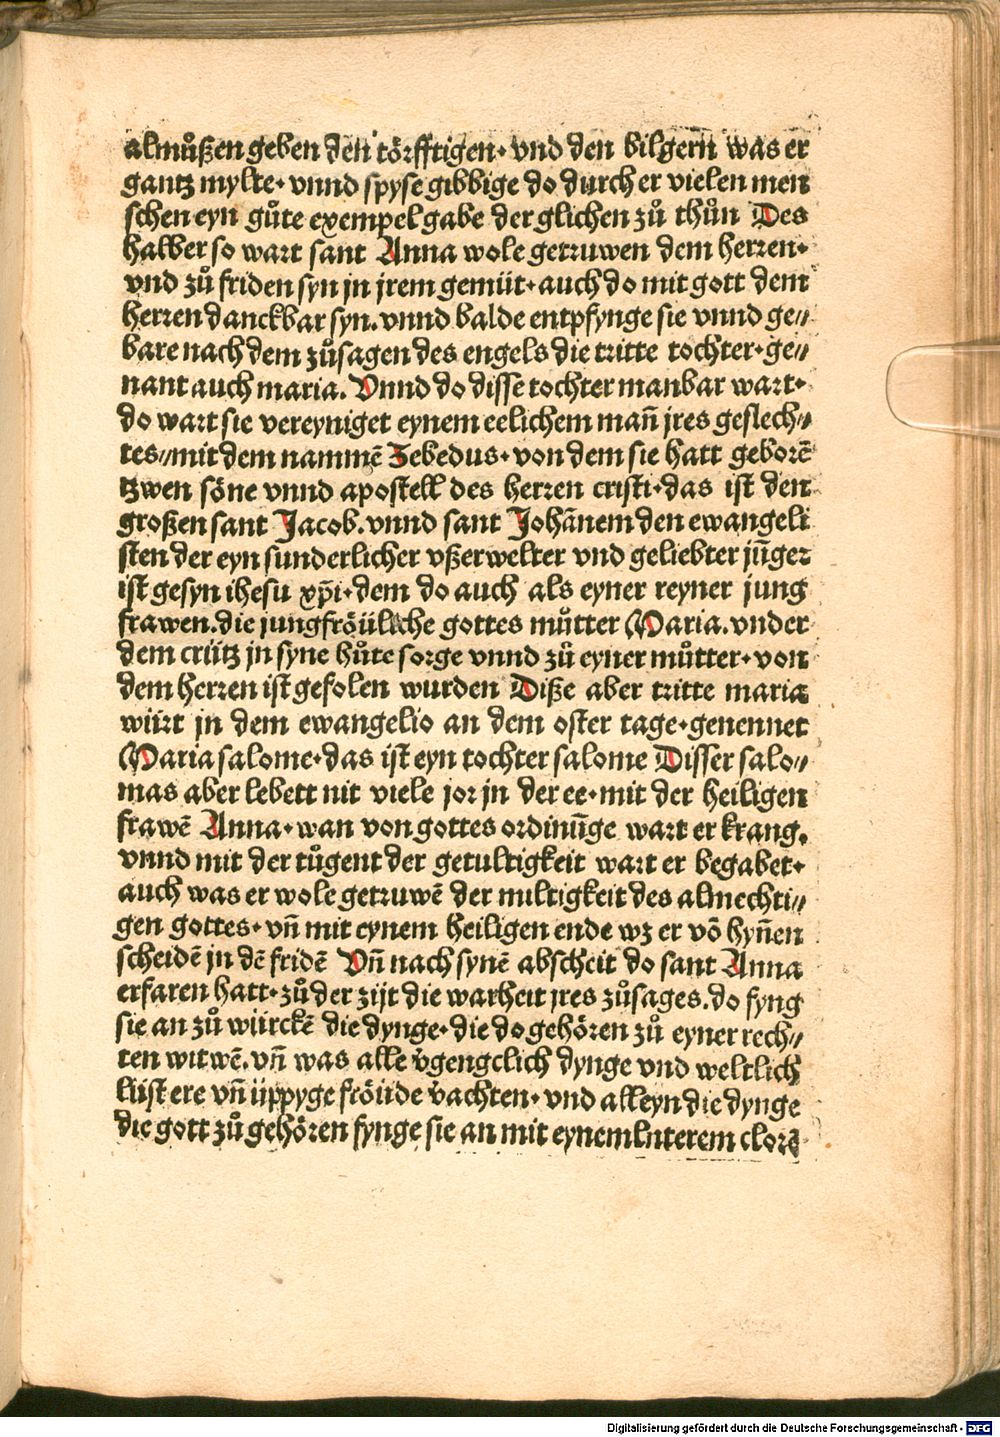 almůßen geben den törfftigen· vnd den bilgern was er
gantz mylte· vnnd spyse gibbige do durch er vielen men
schen eyn gůte exempel gabe der glichen zů thůn Des
halber so wart sant Anna wole getruwen dem herren·
vnd zů friden syn jn jrem gemüt· auch do mit gott dem
herren danckbar syn. vnnd balde entpfynge sie vnnd ge⸗
bare nach dem zůsagen des engels die tritte tochter· ge⸗
nant auch maria. Vnnd do disse tochter manbar wart·
do wart sie vereyniget eynem eelichem man̄ jres geslech⸗
tes⸗ mit dem nammē Zebedus· von dem sie hatt geborē
tzwen söne vnnd apostell des herren cristi· das ist den
großen sant Jacob. vnnd sant Johānem den ewangeli
sten der eyn sunderlicher vßerwelter vnd geliebter jūger
ist gesyn ihesu xp̄i· dem do auch als eyner reyner jung
frawen. die jungfröüliche gottes můtter Maria. vnder
dem crütz jn syne hůte sorge vnnd zů eyner můtter· von
dem herren ist gefolen wurden Diße aber tritte maria
würt jn dem ewangelio an dem oster tage· genennet
Maria salome· das ist eyn tochter salome Disser salo⸗
mas aber lebett nit viele jor jn der ee· mit der heiligen
frawē Anna· wan von gottes ordinūge wart er krang.
vnnd mit der tůgent der getultigkeit wart er begabet·
auch was er wole getruwē der miltigkeit des almechti⸗
gen gottes· vn̄ mit eynem heiligen ende wz er vō hyn̄en
scheidē jn dē fridē Vn̄ nach synē abscheit do sant Anna
erfaren hatt· zů der zijt die warheit jres zůsages. do fyng
sie an zů würckē die dynge· die do gehören zů eyner rech⸗
ten witwē. vn̄ was alle v̄gengclich dynge vnd weltlich
lüst ere vn̄ üppyge fröüde v̄achten· vnd alleyn die dynge
die gott zů gehören fynge sie an mit eynem lnterem clorē
Digitalisierung gefördert durch die Deutsche Forschungsgemeinschaft - DFG